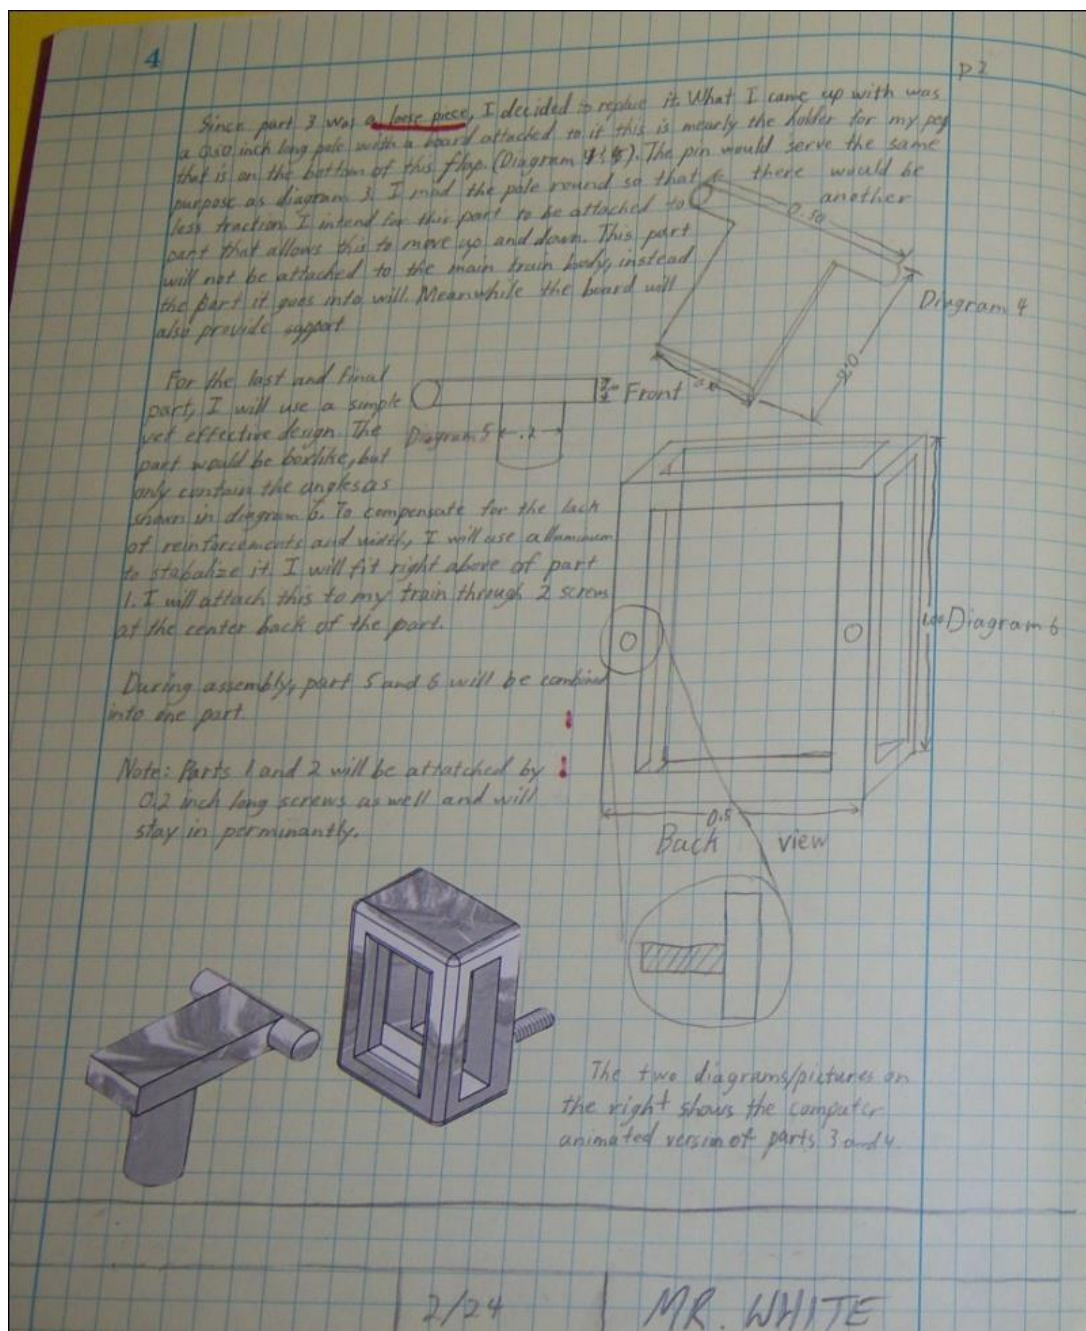 4
p 2
Since part 3 was a loose piece, I decided to replace it. What I came up with was
a 0.50 inch long pole with a board attached to it this is mearly the holder for my peg
that is on the bottom of this flap. (Diagram 4 & 5). The pin would serve the same
purpose as diagram 3. I mad the pole round so that there would be
less traction. I intend for this part to be attached to another
part that allows this to move up and down. This part
will not be attached to the main train body, instead
the part it goes into will. Meanwhile the board will
also provide support
0.50
Diagram 4
2.0
For the last and final
part, I will use a simple
yet effective design. The
part would be boxlike, but
only contain the angles as
shown in diagram 6. To compensate for the lack
of reinforcements and width, I will use alluminum
to stabalize it. I will fit right above of part
1. I will attach this to my train through 2 screws
at the center back of the part.
Front
Diagram 5
.2
1.00
Diagram 6
During assembly, part 5 and 6 will be combined
into one part.
Note: Parts 1 and 2 will be attatched by
0.2 inch long screws as well and will
stay in perminantly.
0.5
Back view
The two diagrams/pictures on
the right shows the computer
animated version of parts 3 and 4.
2/24
MR. WHITE